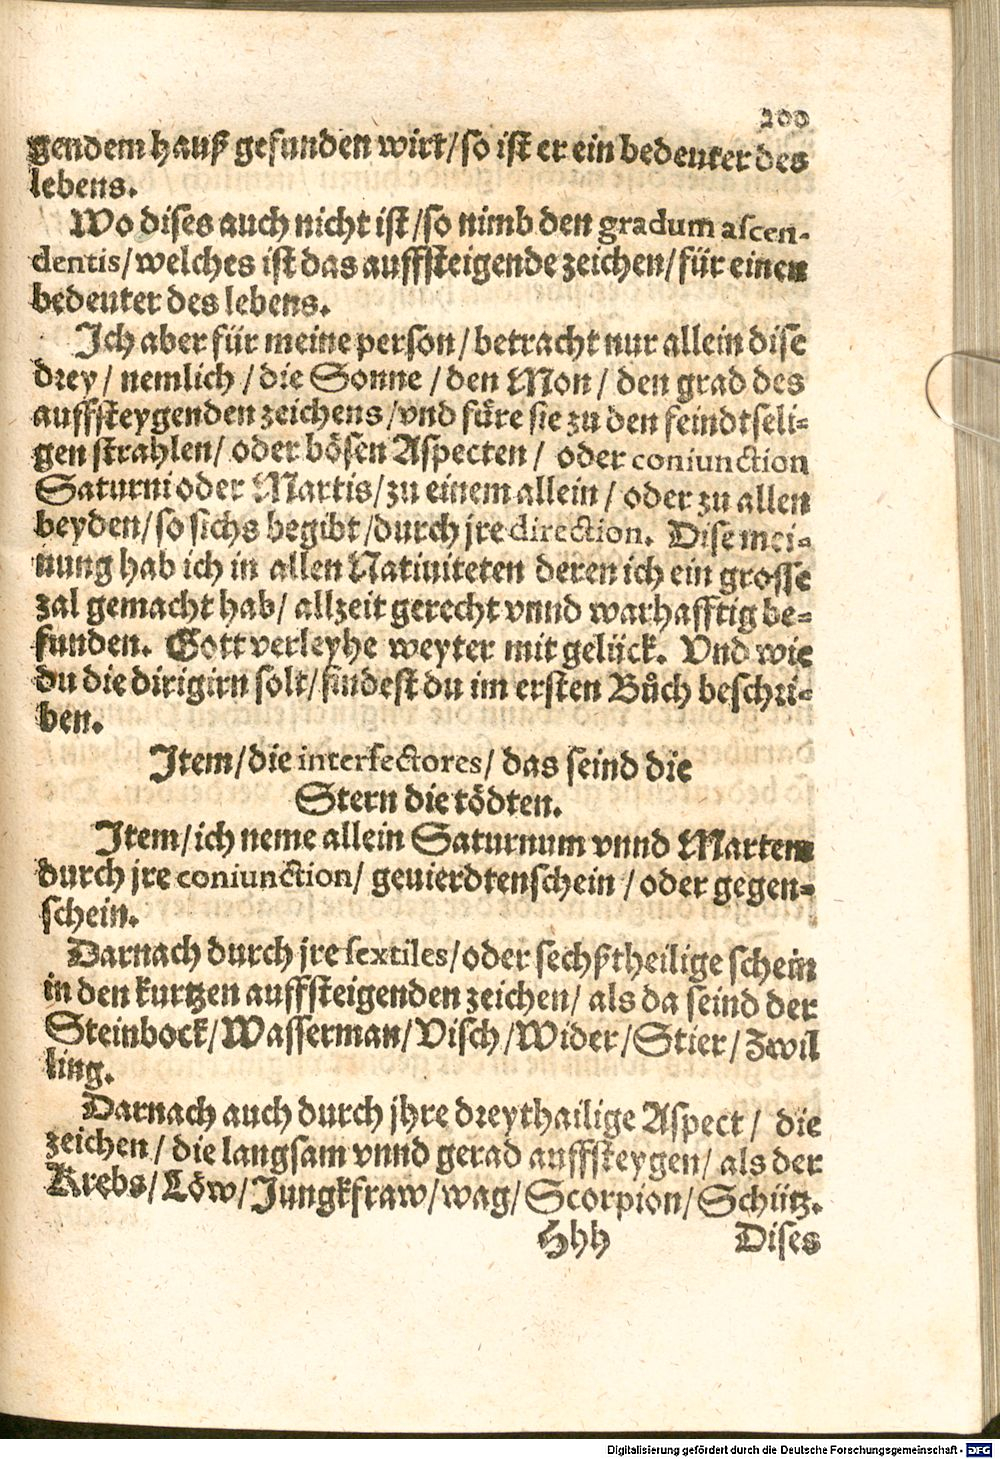 200
gendem hauß gefunden wirt/so ist er ein bedeuter des
lebens.
Wo dises auch nicht ist/so nimb den gradum ascen-
dentis/welches ist das auffsteigende zeichen/für einen
bedeuter des lebens.
Ich aber für meine person/betracht nur allein dise
drey/ nemlich/die Sonne/den Mon/ den grad des
auffsteygenden zeichens/vnd füre sie zu den feindtseli-
gen strahlen/ oder bösen Aspecten/ oder coniunction
Saturni oder Martis/zu einem allein/ oder zu allen
beyden/so sichs begibt/durch jre direction. Dise mei-
nung hab ich in allen Natiuiteten deren ich ein grosse
zal gemacht hab/ allzeit gerecht vnnd warhafftig be-
funden. Gott verleyhe weyter mit gelück. Vnd wie
du die dirigirn solt/findest du im ersten Bůch beschri-
ben.
Item/die interfectores/ das seind die
Stern die tödten.
Item/ich neme allein Saturnum vnnd Martem
durch jre coniunction/ geuierdtenschein/oder gegen-
schein.
Darnach durch jre sextiles/oder sechßtheilige schein
in den kurtzen auffsteigenden zeichen/ als da seind der
Steinbock/Wasserman/Visch/Wider/Stier/Zwil
ling.
Darnach auch durch jhre dreythailige Aspect/ die
zeichen/ die langsam vnnd gerad auffsteygen/ als der
Krebs/Löw/Jungkfraw/wag/Scorpion/Schütz.
Hhh Dises
Digitalisierung gefördert durch die Deutsche Forschungsgemeinschaft - DFG